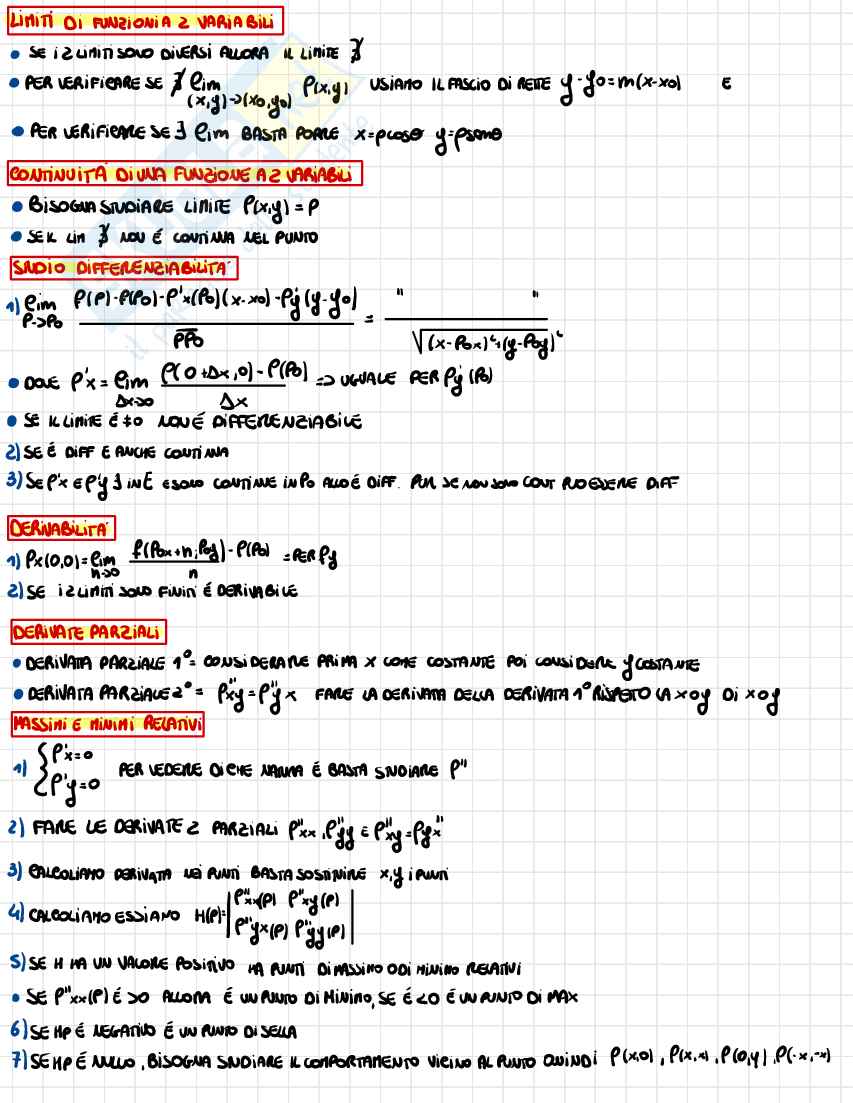 LIMITI DI FUNZIONI A 2 VARIABILI
• SE I 2 LIMITI SONO DIVERSI ALLORA IL LIMITE ∄
• PER VERIFICARE SE ∄ lim (x,y)→(x0,y0) f(x,y) USIAMO IL FASCIO DI RETTE y-y0=m(x-x0) E
• PER VERIFICARE SE ∃ lim BASTA PORRE x=ρcosθ y=ρsenθ
CONTINUITÀ DI UNA FUNZIONE A 2 VARIABILI
• BISOGNA STUDIARE LIMITE f(x,y)=P
• SE IL LIM ∄ NON É CONTINUA NEL PUNTO
STUDIO DIFFERENZIABILITÀ
1) lim P→P0 f(P)-f(P0)-f'x(P0)(x-x0)-fy'(y-y0) / PP0 = " " / √(x-P0x)²+(y-P0y)²
• DOVE f'x = lim Δx→0 f(0+Δx,0)-f(P0) / Δx => UGUALE PER fy'(P0)
• SE IL LIMITE É ≠0 NON É DIFFERENZIABILE
2) SE É DIFF E ANCHE CONTINUA
3) SE f'x E f'y ∃ IN E E SONO CONTINUE IN P0 ALLO É DIFF. PUR SE NON SONO CONT PUO ESSERE DIFF
DERIVABILITÀ
1) fx(0,0)= lim h→0 f(P0x+h,P0y)-f(P0) / h = PER fy
2) SE I 2 LIMITI SONO FINITI É DERIVABILE
DERIVATE PARZIALI
• DERIVATA PARZIALE 1°= CONSIDERARE PRIMA X COME COSTANTE POI CONSIDERE y COSTANTE
• DERIVATA PARZIALE 2° = f"xy = f"yx FARE LA DERIVATA DELLA DERIVATA 1° RISPETO LA x O y DI x O y
MASSIMI E MINIMI RELATIVI
1) { f'x=0 f'y=0 PER VEDERE DI CHE NATURA É BASTA STUDIARE f"
2) FARE LE DERIVATE 2 PARZIALI f"xx, f"yy E f"xy=fyx"
3) CALCOLIAMO DERIVATA NEI PUNTI BASTA SOSTITUIRE x,y I PUNTI
4) CALCOLIAMO ESSIANO H(P)= | f"xx(P) f"xy(P) f"yx(P) f"yy(P) |
5) SE H HA UN VALORE POSITIVO HA PUNTI DI MASSIMO O DI MINIMO RELATIVI
• SE f"xx(P) É >0 ALLORA É UN PUNTO DI MINIMO, SE É <0 É UN PUNTO DI MAX
6) SE HP É NEGATIVO É UN PUNTO DI SELLA
7) SE HP É NULLO, BISOGNA STUDIARE IL COMPORTAMENTO VICINO AL PUNTO QUINDI f(x,0), f(x,x), f(0,y), f(-x,-x)